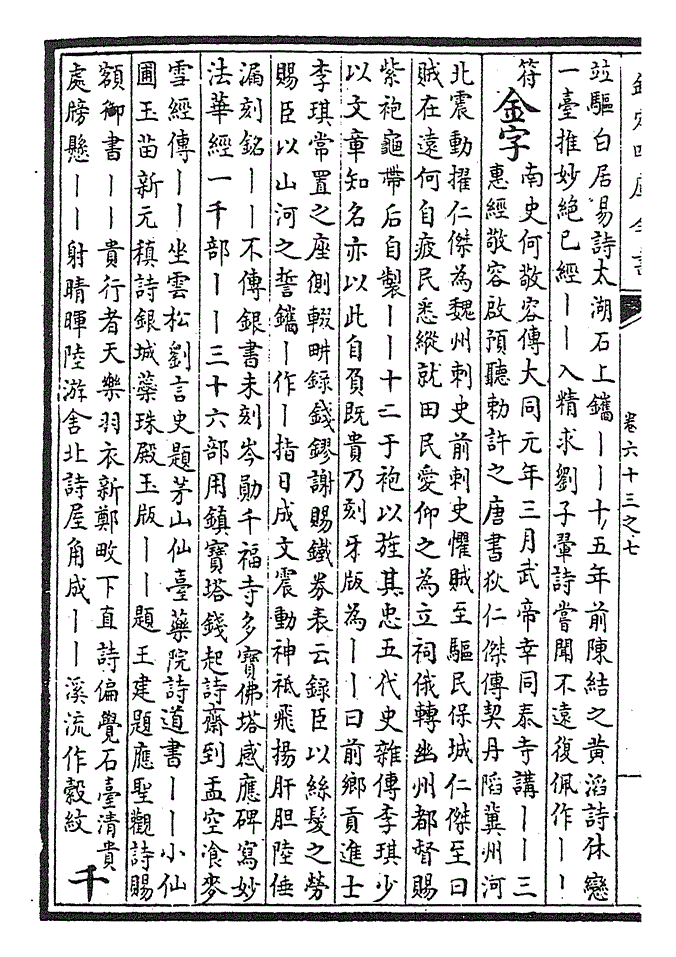 欽定四庫全書
卷六十三之七
竝驅白居易詩太湖石上鐫丨丨十五年前陳結之黃滔詩休戀
一臺推妙絕已經丨丨入精求劉子翬詩嘗聞不遠復佩作丨丨
符
金字
南史何敬容傳大同元年三月武帝幸同泰寺講丨丨三
惠經敬容啟預聽勅許之唐書狄仁傑傳契丹䧟冀州河
北震動擢仁傑為魏州刺史前刺史懼賊至驅民保城仁傑至曰
賊在遠何自疲民悉縱就田民愛仰之為立祠俄轉幽州都督賜
紫袍龜帶后自製丨丨十二于袍以旌其忠五代史雜傳李琪少
以文章知名亦以此自負既貴乃刻牙版為丨丨曰前鄉貢進士
李琪常置之座側輟畊錄錢鏐謝賜鐵券表云錄臣以絲髮之勞
賜臣以山河之誓鐫丨作丨指日成文震動神祗飛揚肝胆陸倕
漏刻銘丨丨不傳銀書未刻岑勛千福寺多寶佛塔感應碑寫妙
法華經一千部丨丨三十六部用鎮寶塔錢起詩齋到盂空飡麥
雪經傳丨丨坐雲松劉言史題茅山仙臺藥院詩道書丨丨小仙
圃玉苗新元稹詩銀城蘂珠殿玉版丨丨題王建題應聖觀詩賜
額御書丨丨貴行者天樂羽衣新鄭畋下直詩偏覺石臺清貴
處牓懸丨丨射晴暉陸游舍北詩屋角成丨丨溪流作縠紋
千